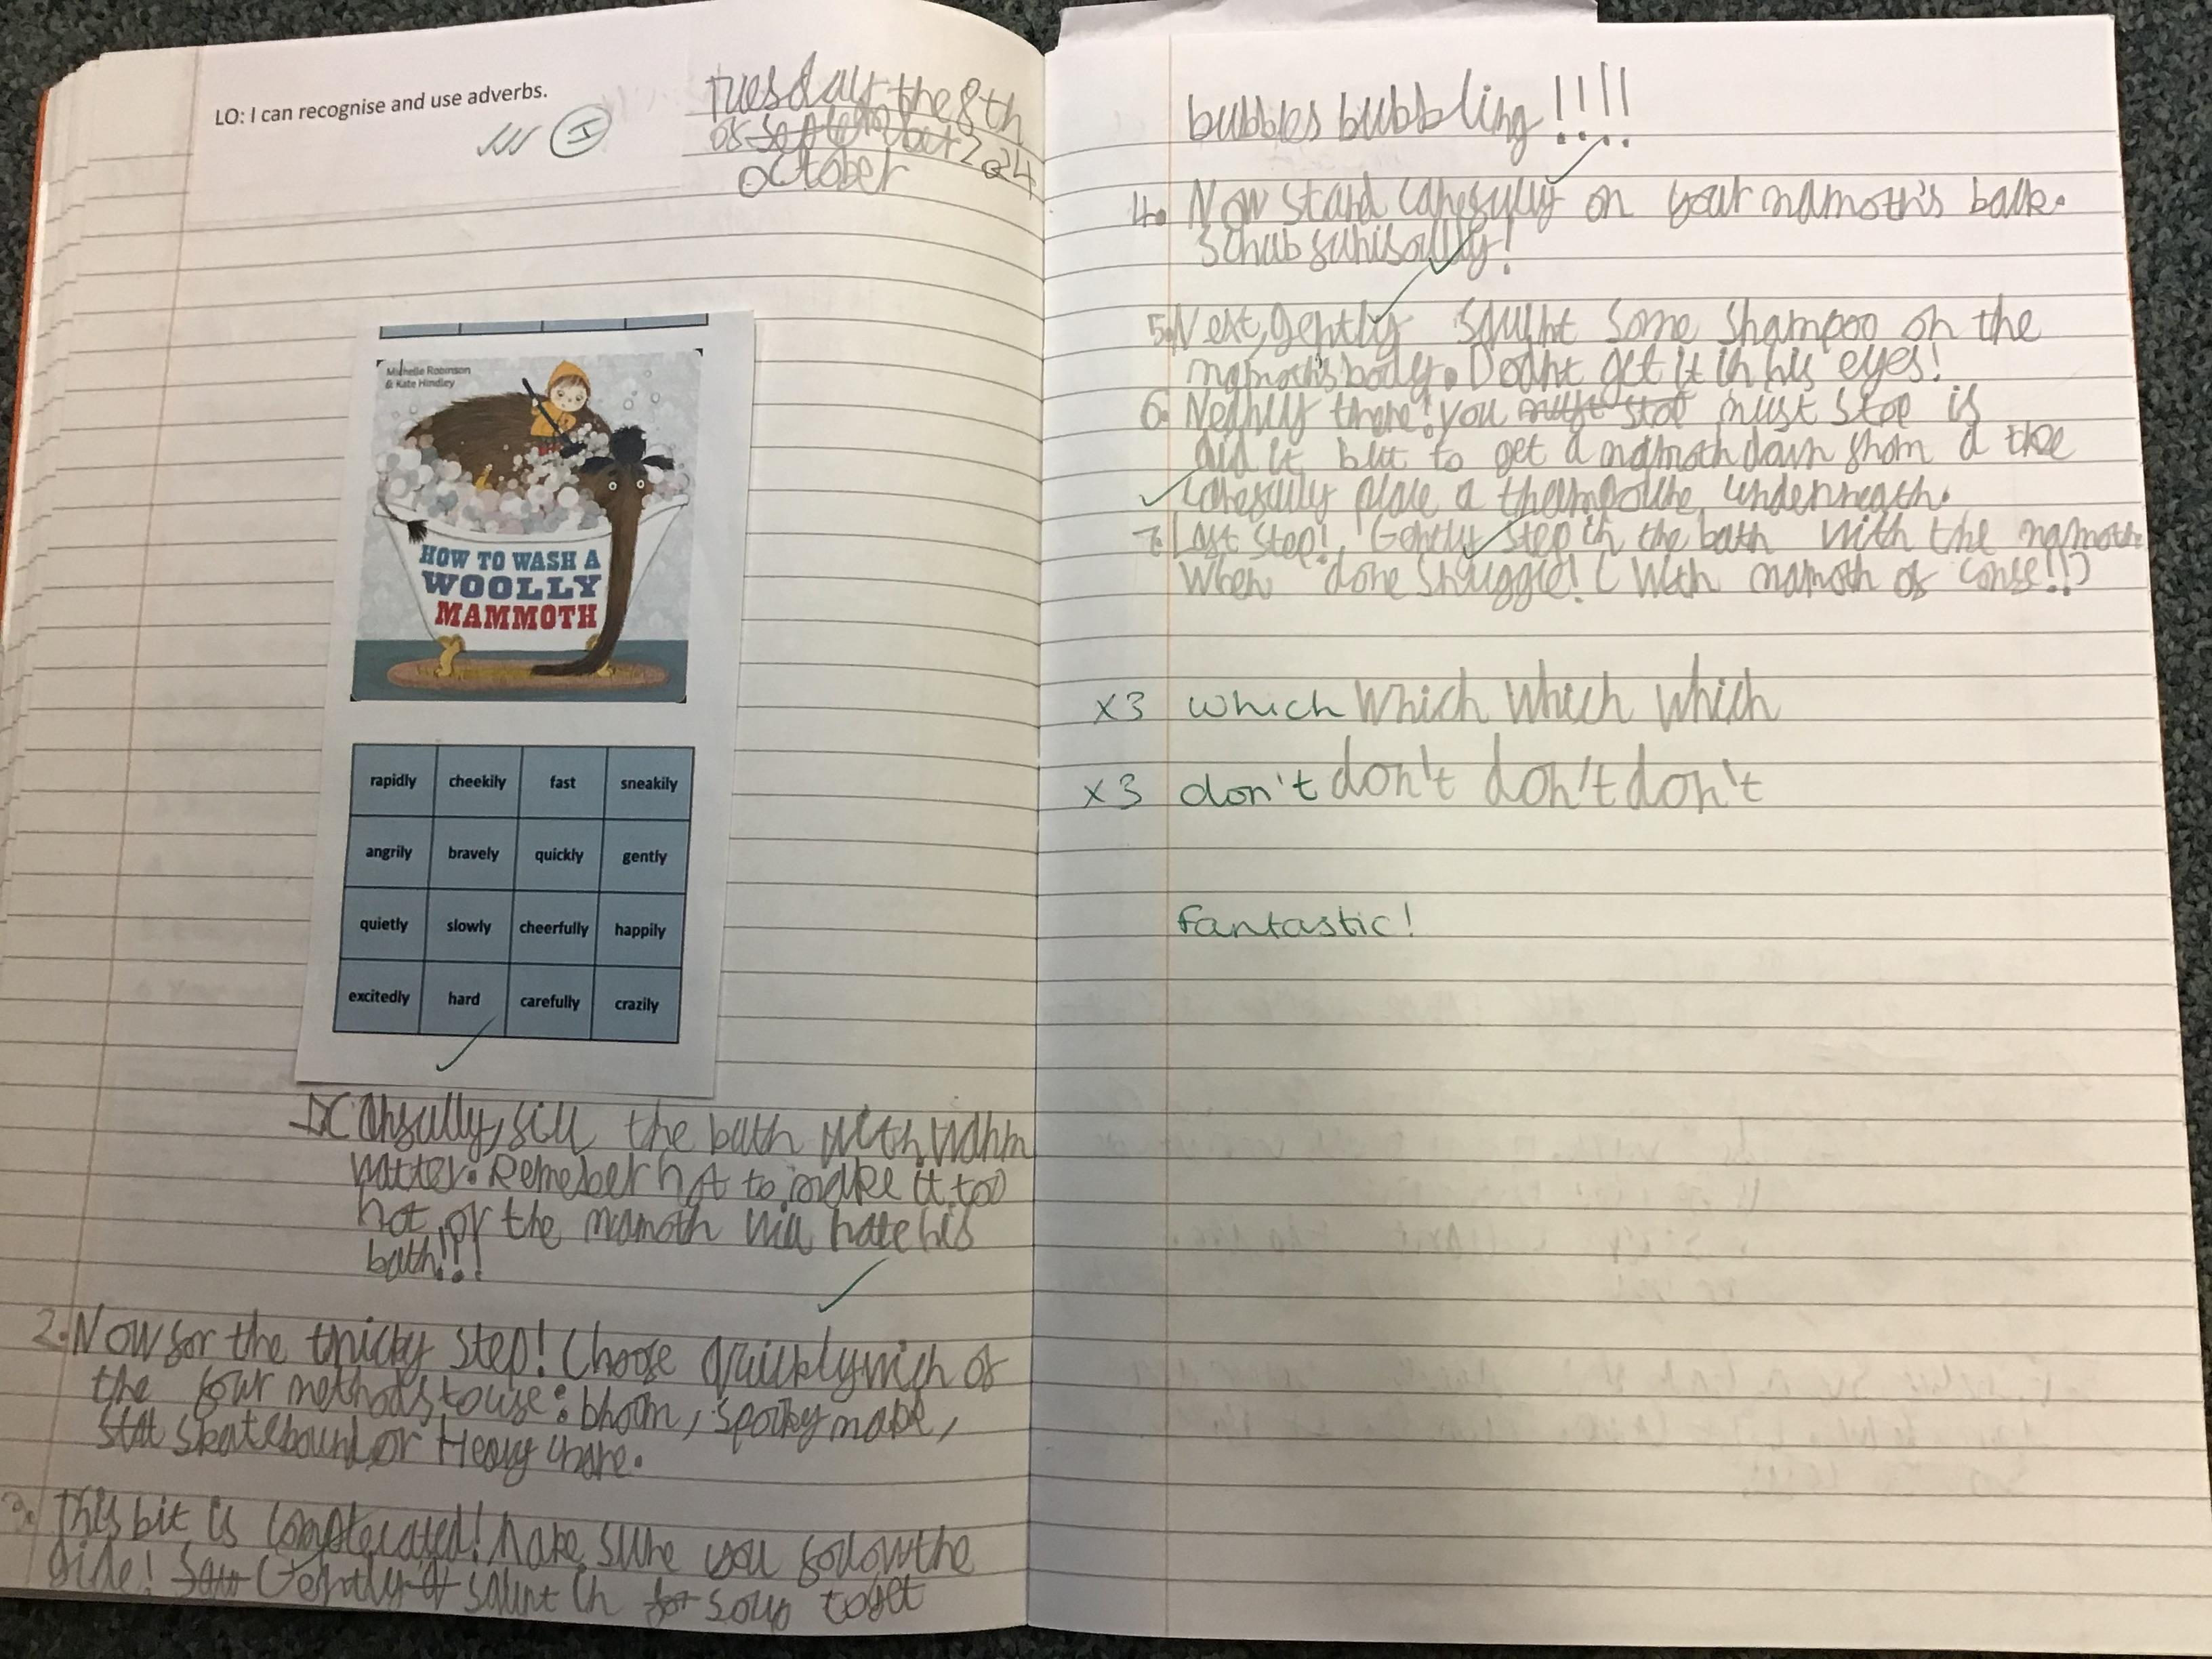 LO: I can recognise and use adverbs.
I
tuesday the 8th
of septembar 2024
october
Michelle Robinson
& Kate Hindley
HOW TO WASH A
WOOLLY
MAMMOTH
rapidly cheekily fast sneakily
angrily bravely quickly gently
quietly slowly cheerfully happily
excitedly hard carefully crazily
1. Carfully, fill the bath with warm
watter. Remeber not to make it too
hot, or the mamoth will hate his
bath!!!
2. Now for the tricky step! Choose quickly wich of
the four methods to use: broom, spooky
skatebourd or Heavy
3. This bit is complecated! Make sure you folow the
gide! Gently in soup to get
bubbles bubbling!!!!
4. Now stand carefully on your mamoth's back.
Scrub
5. Next, gently some shampoo on the
mamoth's body. Doant get it in his eyes!
6. Nearly there! you must stop must stop is
did it but to get a mamoth down from a tree
carefully place a underneath.
7. Last step! Gently step in the bath with the mamoth
when done snuggle! (With mamoth of corse!!)
x3 which which which which
x3 don't don't don't don't
fantastic!